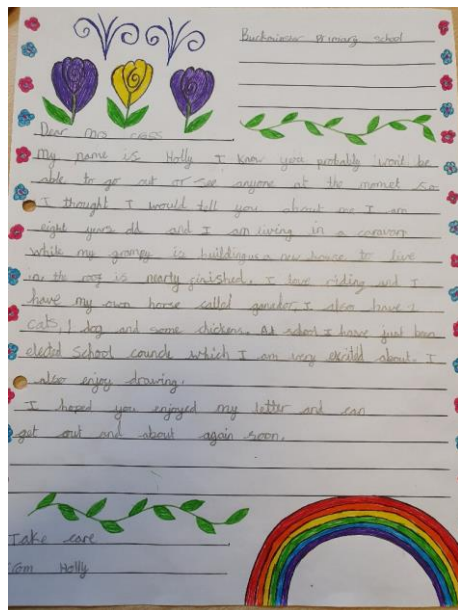 Primary school
Dear Mrs
My name is Holly I know you probably won't be
able to go out or see anyone at the momet so
I thought I would tell you about me I am
eight years old and I am living in a caravan
while my grampy is building us a new house to live
in. the roof is nearly finished. I love riding and I
have my own horse called I also have 2
cats, 1 dog and some chickens. At school I have just been
elected School which I am very excited about. I
also enjoy drawing.
I hoped you enjoyed my letter and can
get out and about again soon.
Take care
from Holly